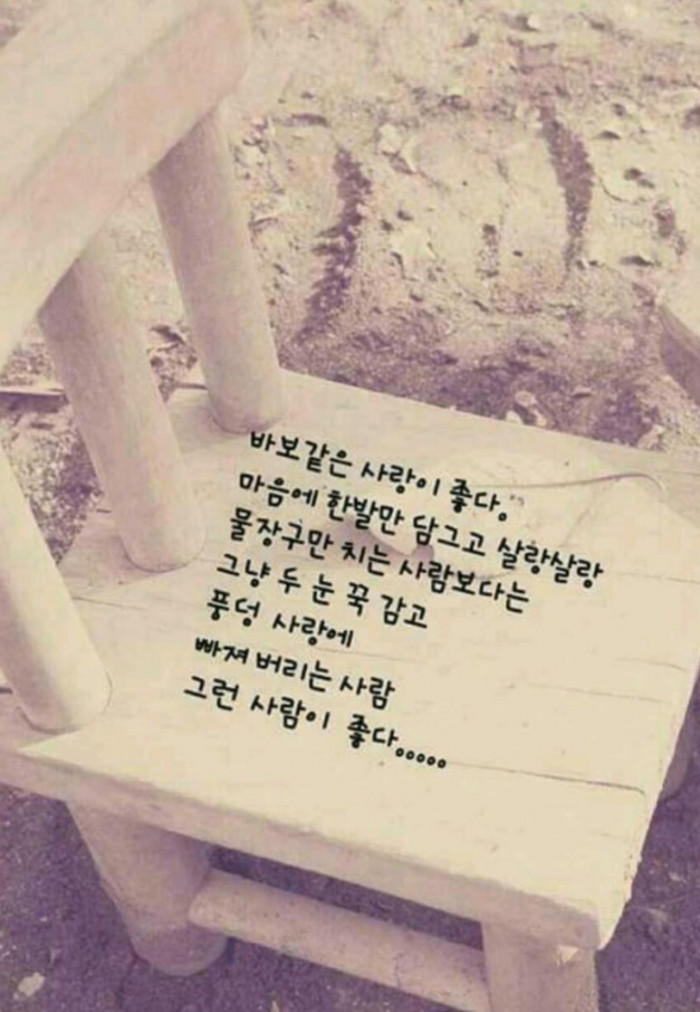 바보같은 사랑이 좋다.
마음에 한발만 담그고 살랑살랑
물장구만 치는 사람보다는
그냥 두 눈 꾹 감고
풍덩 사랑에
빠져 버리는 사람
그런 사람이 좋다.....